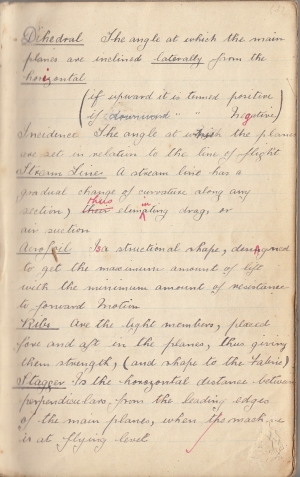 Dihedral The angle at which the main
planes are inclined laterally from the
horizontal
(if upward it is termed positive
(if downward " " Negative)
Incidence The angle at which the planes
are set in relation to the line of flight
Stream Line A stream line has a
gradual change of curvature along any
section, thus eliminating drag, or
air suction
Aerofoil Is a structional shape, designed
to get the maximum amount of lift
with the minimum amount of resistance
to forward motion
Ribs Are the light members, placed
fore and aft in the planes, thus giving
them strength, (and shape to the fabric)
Stagger Is the horozontal distance between
perpendiculars, from the leading edges
of the main planes, when the machine
is at flying level